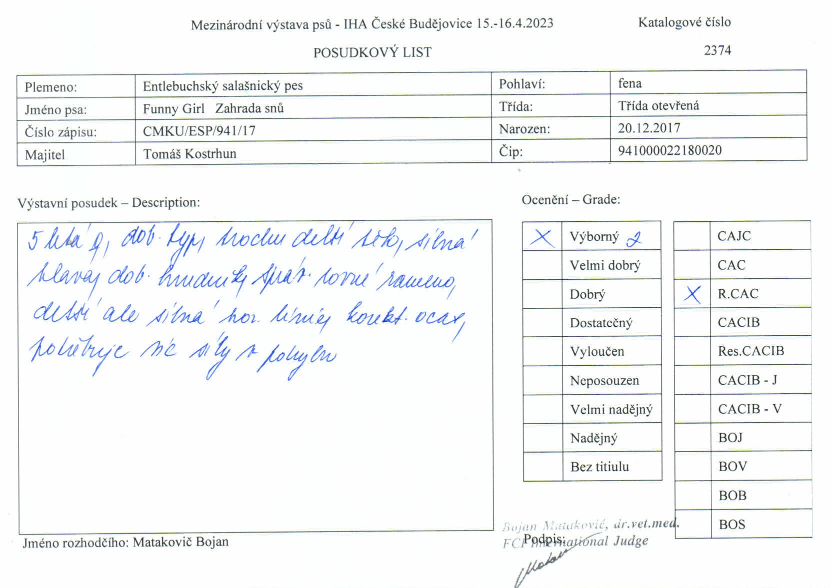 Mezinárodní výstava psů - IHA České Budějovice 15.-16.4.2023
Katalogové číslo
POSUDKOVÝ LIST
2374
Plemeno: Entlebuchský salašnický pes Pohlaví: fena
Jméno psa: Funny Girl Zahrada snů Třída: Třída otevřená
Číslo zápisu: CMKU/ESP/941/17 Narozen: 20.12.2017
Majitel Tomáš Kostrhun Čip: 941000022180020
Výstavní posudek – Description:
5 letá ♀, dob. typ, trochu delší tělo, silná
hlava, dob. hrudník, správ. rovné rameno,
delší ale silná hor. linie, korekt. ocas,
potřebuje víc síly v pohybu
Jméno rozhodčího: Matakovič Bojan
Ocenění – Grade:
X Výborný 2
Velmi dobrý
Dobrý
Dostatečný
Vyloučen
Neposouzen
Velmi nadějný
Nadějný
Bez titiulu
CAJC
CAC
X R.CAC
CACIB
Res.CACIB
CACIB - J
CACIB - V
BOJ
BOV
BOB
BOS
Bojan Mataković, dr.vet.med.
FCI International Judge
Podpis: